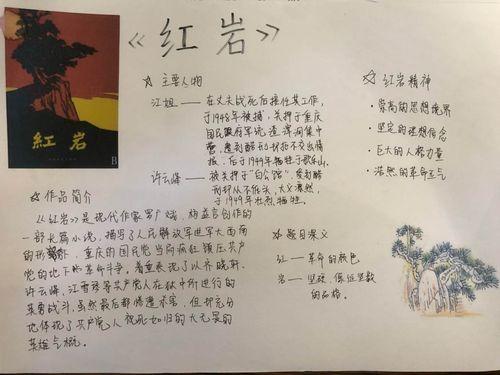 《红岩》
紅岩
B
☆ 主要人物
江姐 —— 在丈夫战死后接任其工作,
于1948年被捕,关押于重庆
国民政府军统渣滓洞集中
营,遭到酷刑折拒不交出情
报,后于1949年牺牲于歌乐山。
许云峰 —— 被关押于"白公馆",受到酷
刑却从不低头,大义凛然,
于1949年壮烈牺牲。
☆ 红岩精神
· 崇高的思想境界
· 坚定的理想信念
· 巨大的人格力量
· 浩然的革命正气
☆ 作品简介
《红岩》是现代作家罗广斌、杨益言创作的
一部长篇小说,描写了人民解放军进军大西南
的形势,重庆的国民党当局疯狂镇压共产
党的地下革命斗争,着重表现了以齐晓轩、
许云峰、江雪琴等共产党人在狱中所进行的
英勇战斗,虽然最后都惨遭杀害,但却充分
地体现了共产党人视死如归的大无畏的
英雄气概。
☆ 题目来义
红 — 革命的颜色
岩 — 坚硬,像征坚毅
的品格。